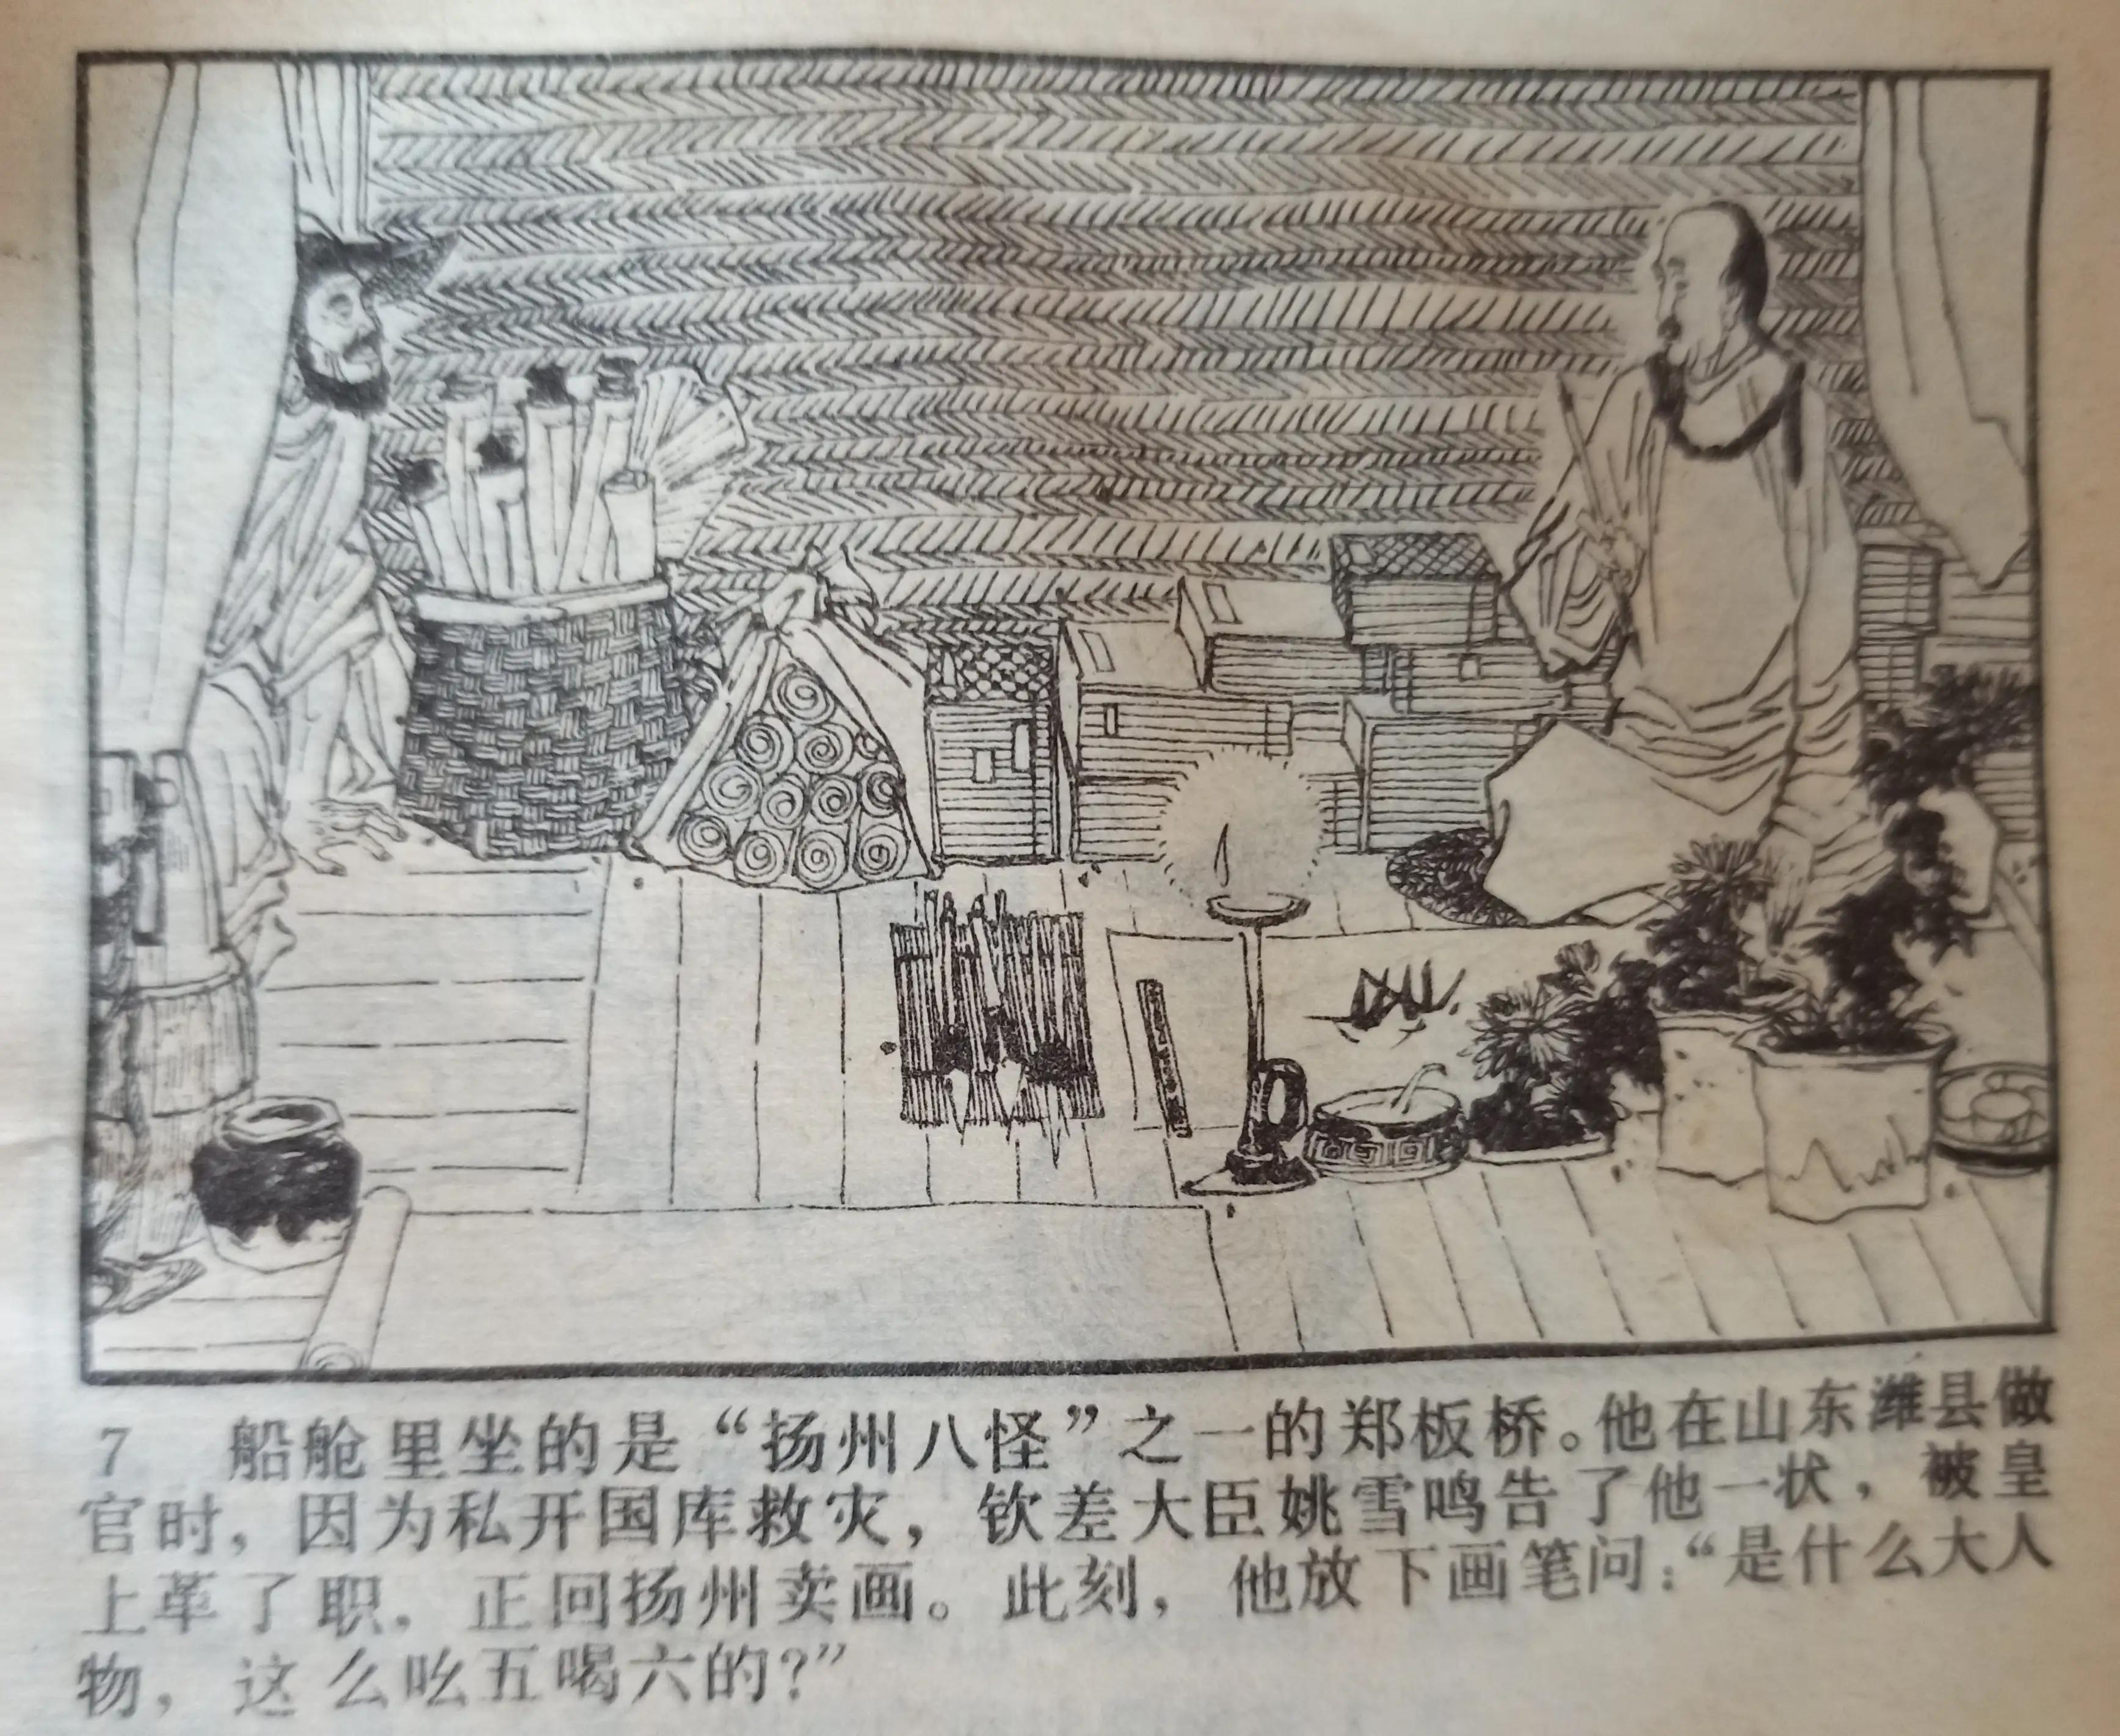 7 船舱里坐的是“扬州八怪”之一的郑板桥。他在山东潍县做
官时，因为私开国库救灾，钦差大臣姚雪鸣告了他一状，被皇
上革了职，正回扬州卖画。此刻，他放下画笔问：“是什么大人
物，这么吆五喝六的？”